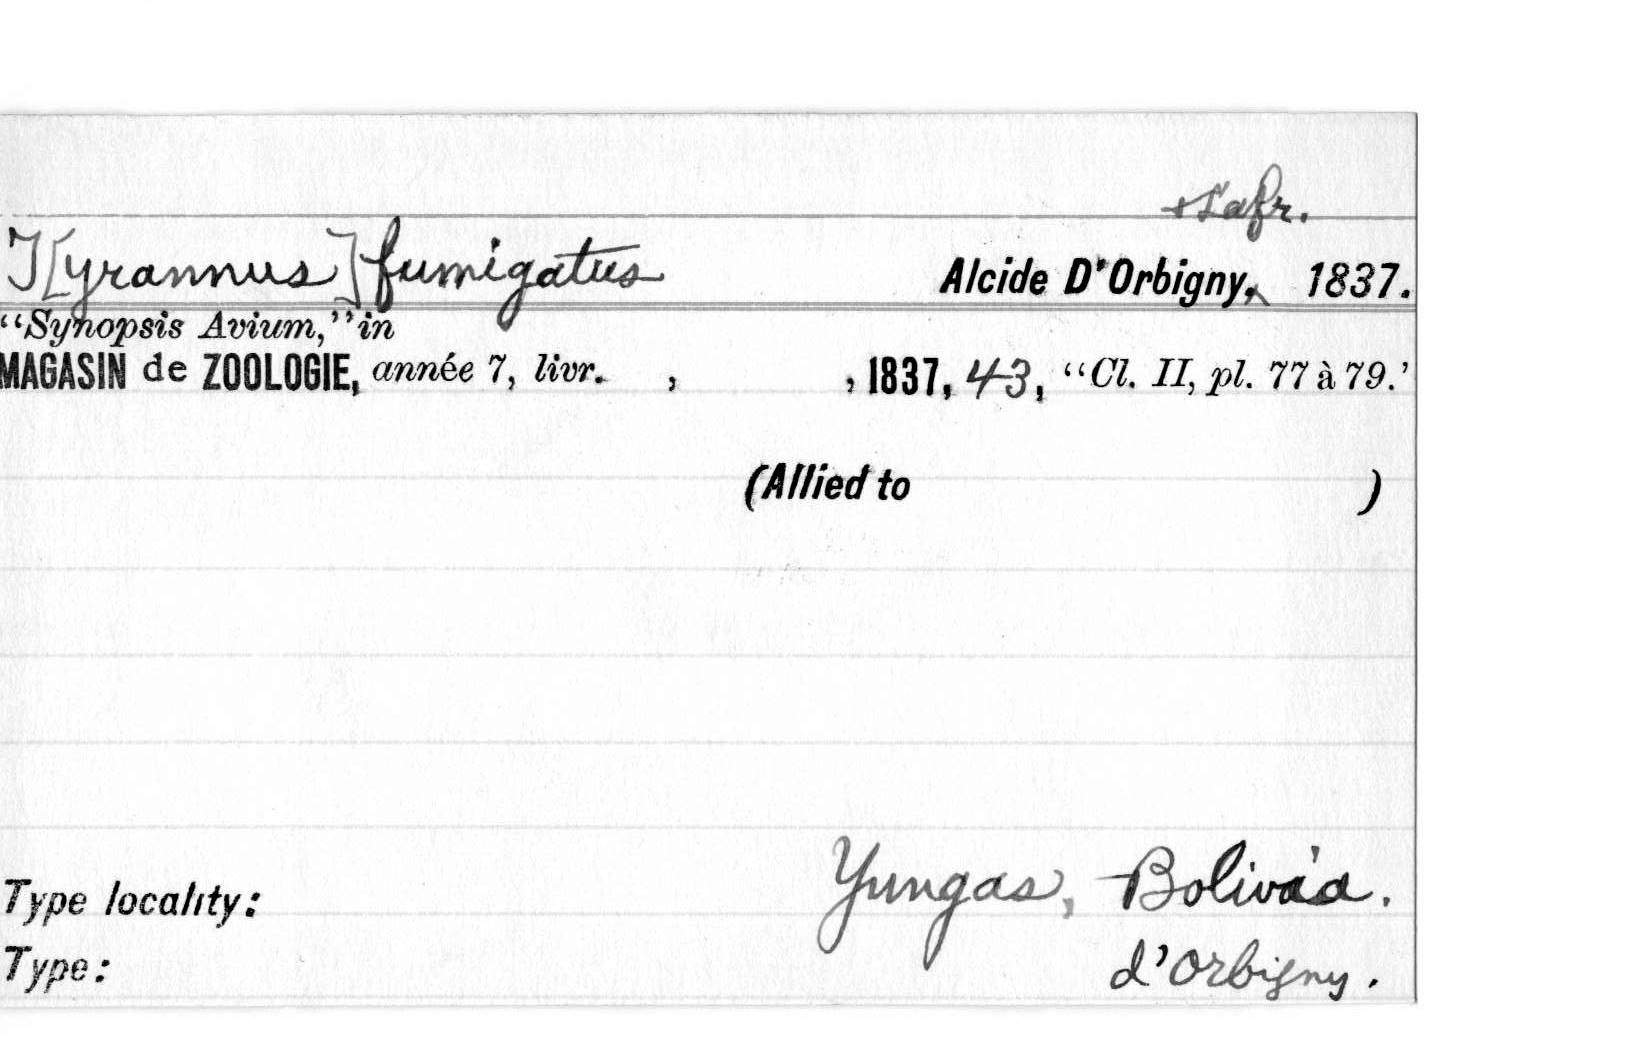 + Lafr.
T[yrannus] fumigatus Alcide D'Orbigny, 1837.
“Synopsis Avium,” in
MAGASIN de ZOOLOGIE, année 7, livr. , , 1837, 43, “Cl. II, pl. 77 à 79.’
(Allied to )
Type locality: Yungas, Bolivia.
Type: d'Orbigny.